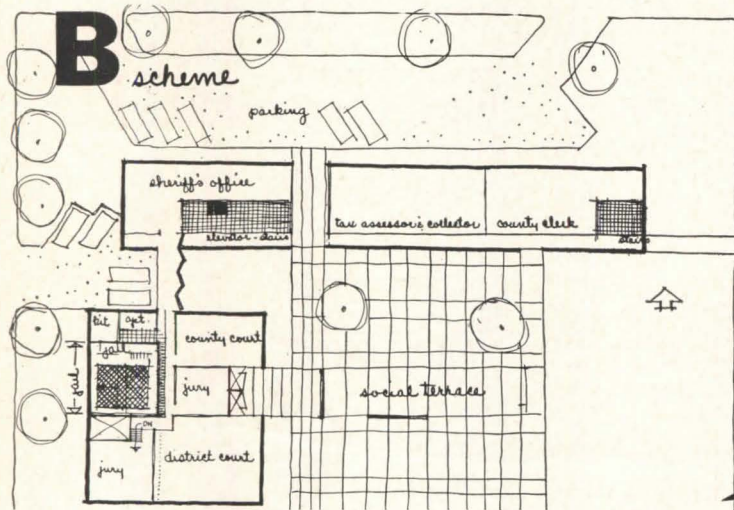 B scheme
parking
sheriff's office
elevator-stairs
tax assessor & collector
county clerk
stairs
kit
apt
jail
jail
county court
jury
social terrace
DN
jury
district court